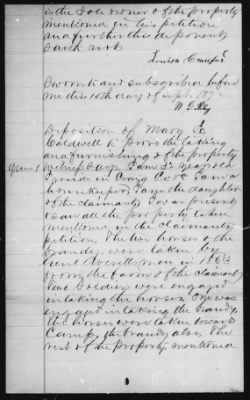 is the Sole owner of the property
mentioned in his petition
and further this deponent
saith not
Louisa
Sworn to and subscribed before
me this 10th day of Sept 187
W D
Deposition of Mary E
Caldwell to prove the taking
and furnishing of the property
Ques 1 I am 32 years old
reside in Ga I am a
housekeeper. I am the daughter
of the claimant. I was present
& saw all the property taken
mentioned in the claimants
petition. The two horses &
brandy were taken by
men in 186
from the farm of the claimant
Soldiers were engaged
in taking the horses. One was
engaged in taking the brandy
the horses were taken toward
Camp, the brandy also. The
rest of the property mentioned